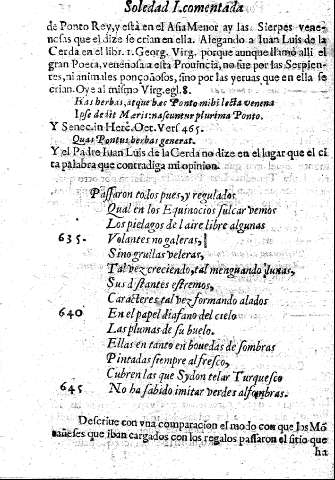 Soledad I. comentada
de Ponto Rey, y està en el Asia Menor ay las. Sierpes vene-
nosas que el dize se crian en ella. Alegando a Iuan Luis de la
Cerda en el libr. 1. Georg. Virg. porque aunque llamò alli el
gran Poeta, venenosa a esta Prouincia, no fue por las Serpien-
tes, ni animales ponçoñosos, sino por las yeruas que en ella se
crian. Oye al mismo Virg. egl. 8.
Has herbas, atque hæc Ponto mihi lecta venena
Ipse dedit Mæris: nascuntur plurima Ponto.
Y Senec. in Herc. Oet. Vers 465.
Quas Pontus herbas generat.
Y el Padre Iuan Luis de la Cerda no dize en el lugar que el ci
ta palabra que contradiga mi opinion.
Passaron todos pues, y regulados
Qual en los Equinocios sulcar vemos
Los pielagos del aire libre algunas
635. Volantes no galeras,
Sino grullas veleras,
Tal vez creciendo, tal menguando lunas,
Sus distantes estremos,
Caracteres tal vez formando alados
640 En el papel diafano del cielo
Las plumas de su buelo.
Ellas en tanto en bouedas de sombras
Pintadas siempre al fresco,
Cubren las que Sydon telar Turquesco
645 No ha sabido imitar verdes alfombras.
Descriue con vna comparacion el modo con que los Mõ
tañeses que iban cargados con los regalos passaron el sitio que
ha